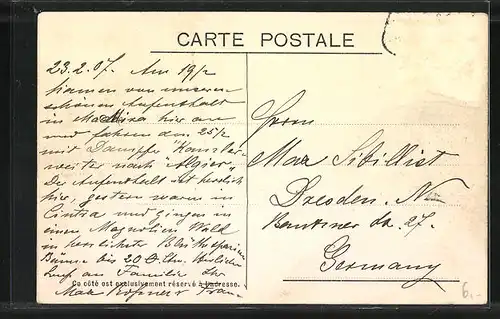 CARTE POSTALE
23.2.07. Am 19/2
kamen von unserem
schönen Aufenthalt
in Madeira hier an
und fahren den 25/2
mit Dampfer "Kanzler
nach "Algier"
Der Aufenthalt ist herrlich
hier, gestern waren in
Cintra und gingen in
einen Magnolien Wald
in herrlichster
Bäume bis 20
an Familie Ihr
Max u Frau
Ce côté est exclusivement réservé à l'adresse.
Herrn
Max
Dresden. N
Bautzner Str. 27.
Germany
6,-